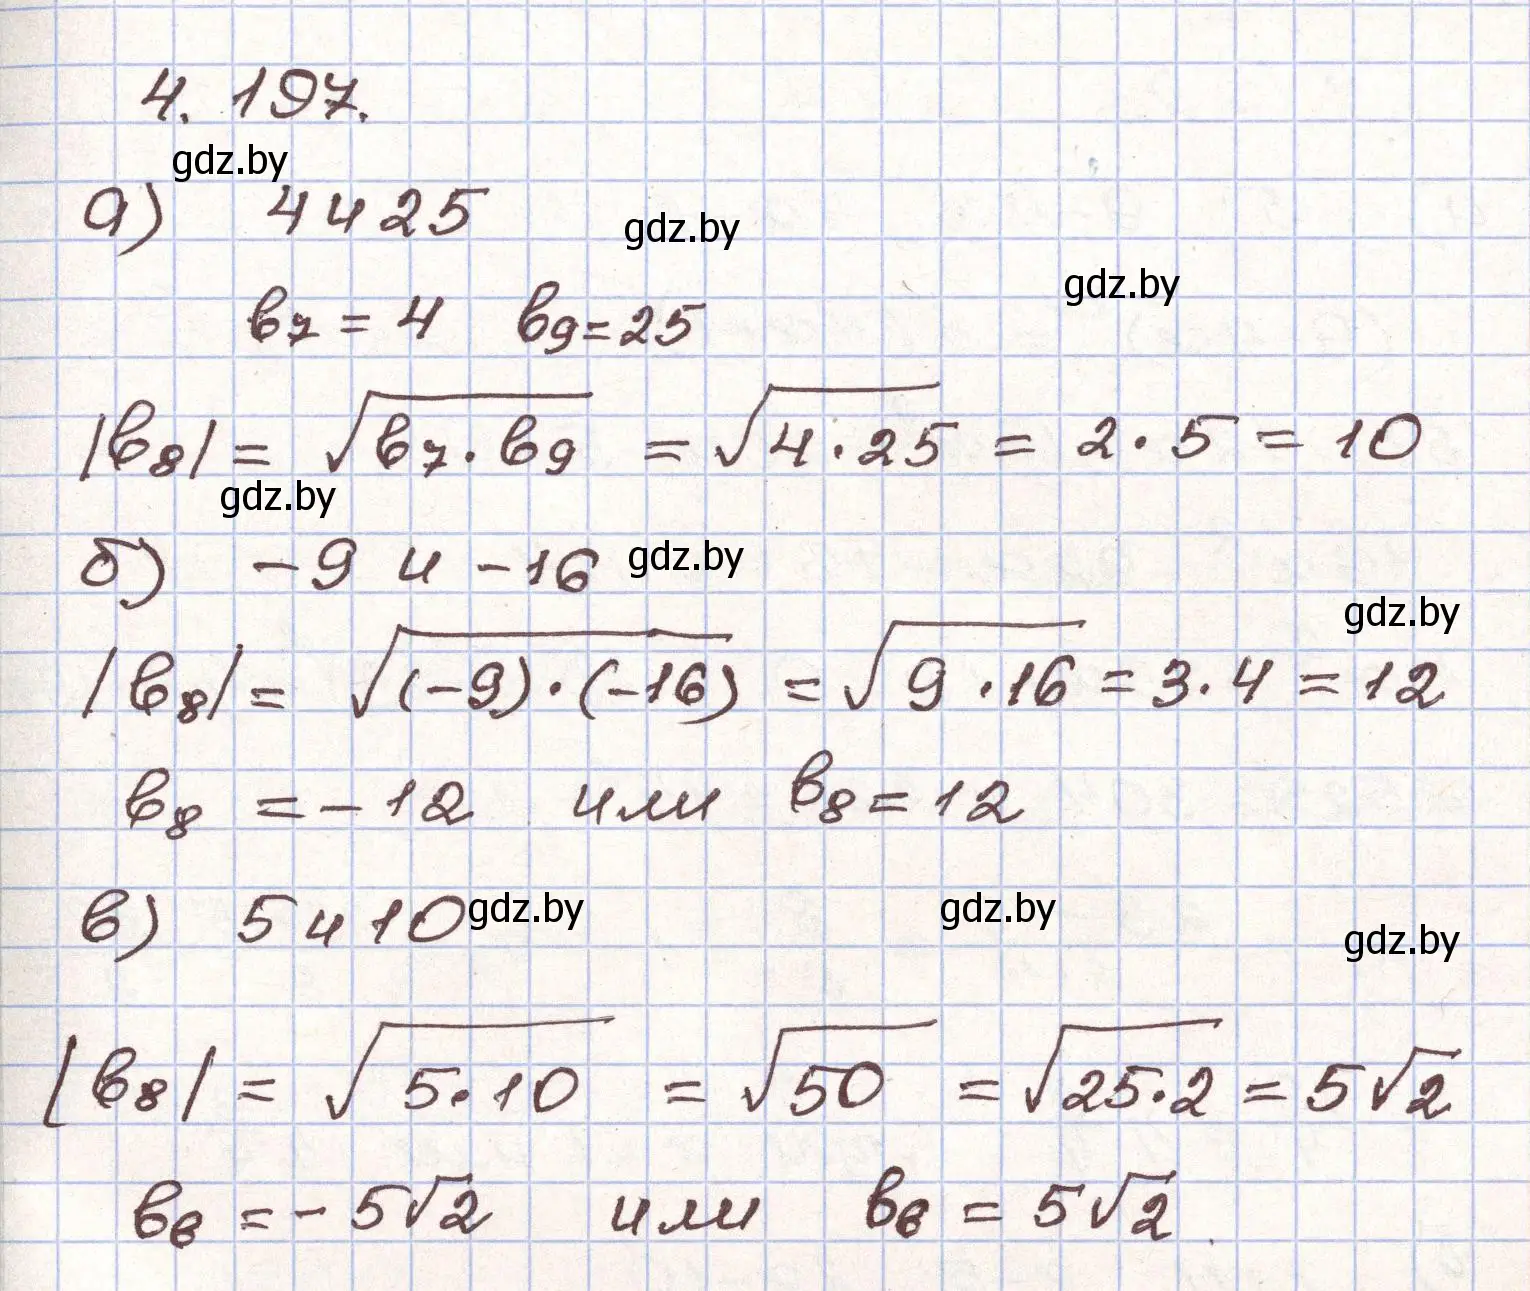 4.197.
gdz.by
а) 4 и 25
gdz.by
gdz.by
b₇ = 4 b₉ = 25
|b₈| = √(b₇ · b₉) = √(4 · 25) = 2 · 5 = 10
gdz.by
б) -9 и -16
gdz.by
gdz.by
|b₈| = √((-9) · (-16)) = √(9 · 16) = 3 · 4 = 12
b₈ = -12 или b₈ = 12
в) 5 и 10
gdz.by
gdz.by
gdz.by
|b₈| = √(5 · 10) = √50 = √(25 · 2) = 5√2
b₆ = -5√2 или b₆ = 5√2